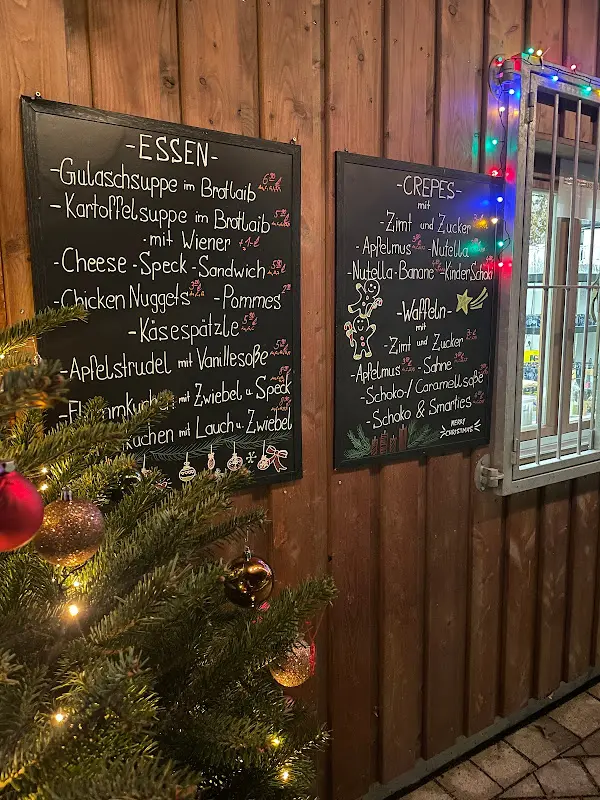 -ESSEN-
-Gulaschsuppe im Brotlaib
-Kartoffelsuppe im Brotlaib
-mit Wiener +1.-€
-Cheese-Speck-Sandwich
-Chicken Nuggets -Pommes
-Käsespätzle
-Apfelstrudel mit Vanillesoße
mit Zwiebel u. Speck
kuchen mit Lauch u. Zwiebel
-CREPES-
mit
-Zimt und Zucker
-Apfelmus -Nutella
-Nutella-Banane -Kinder Schoki
-Waffeln-
mit
-Zimt und Zucker
-Apfelmus -Sahne
-Schoko-/Caramellsoße
-Schoko & Smarties
MERRY
CHRISTMAS